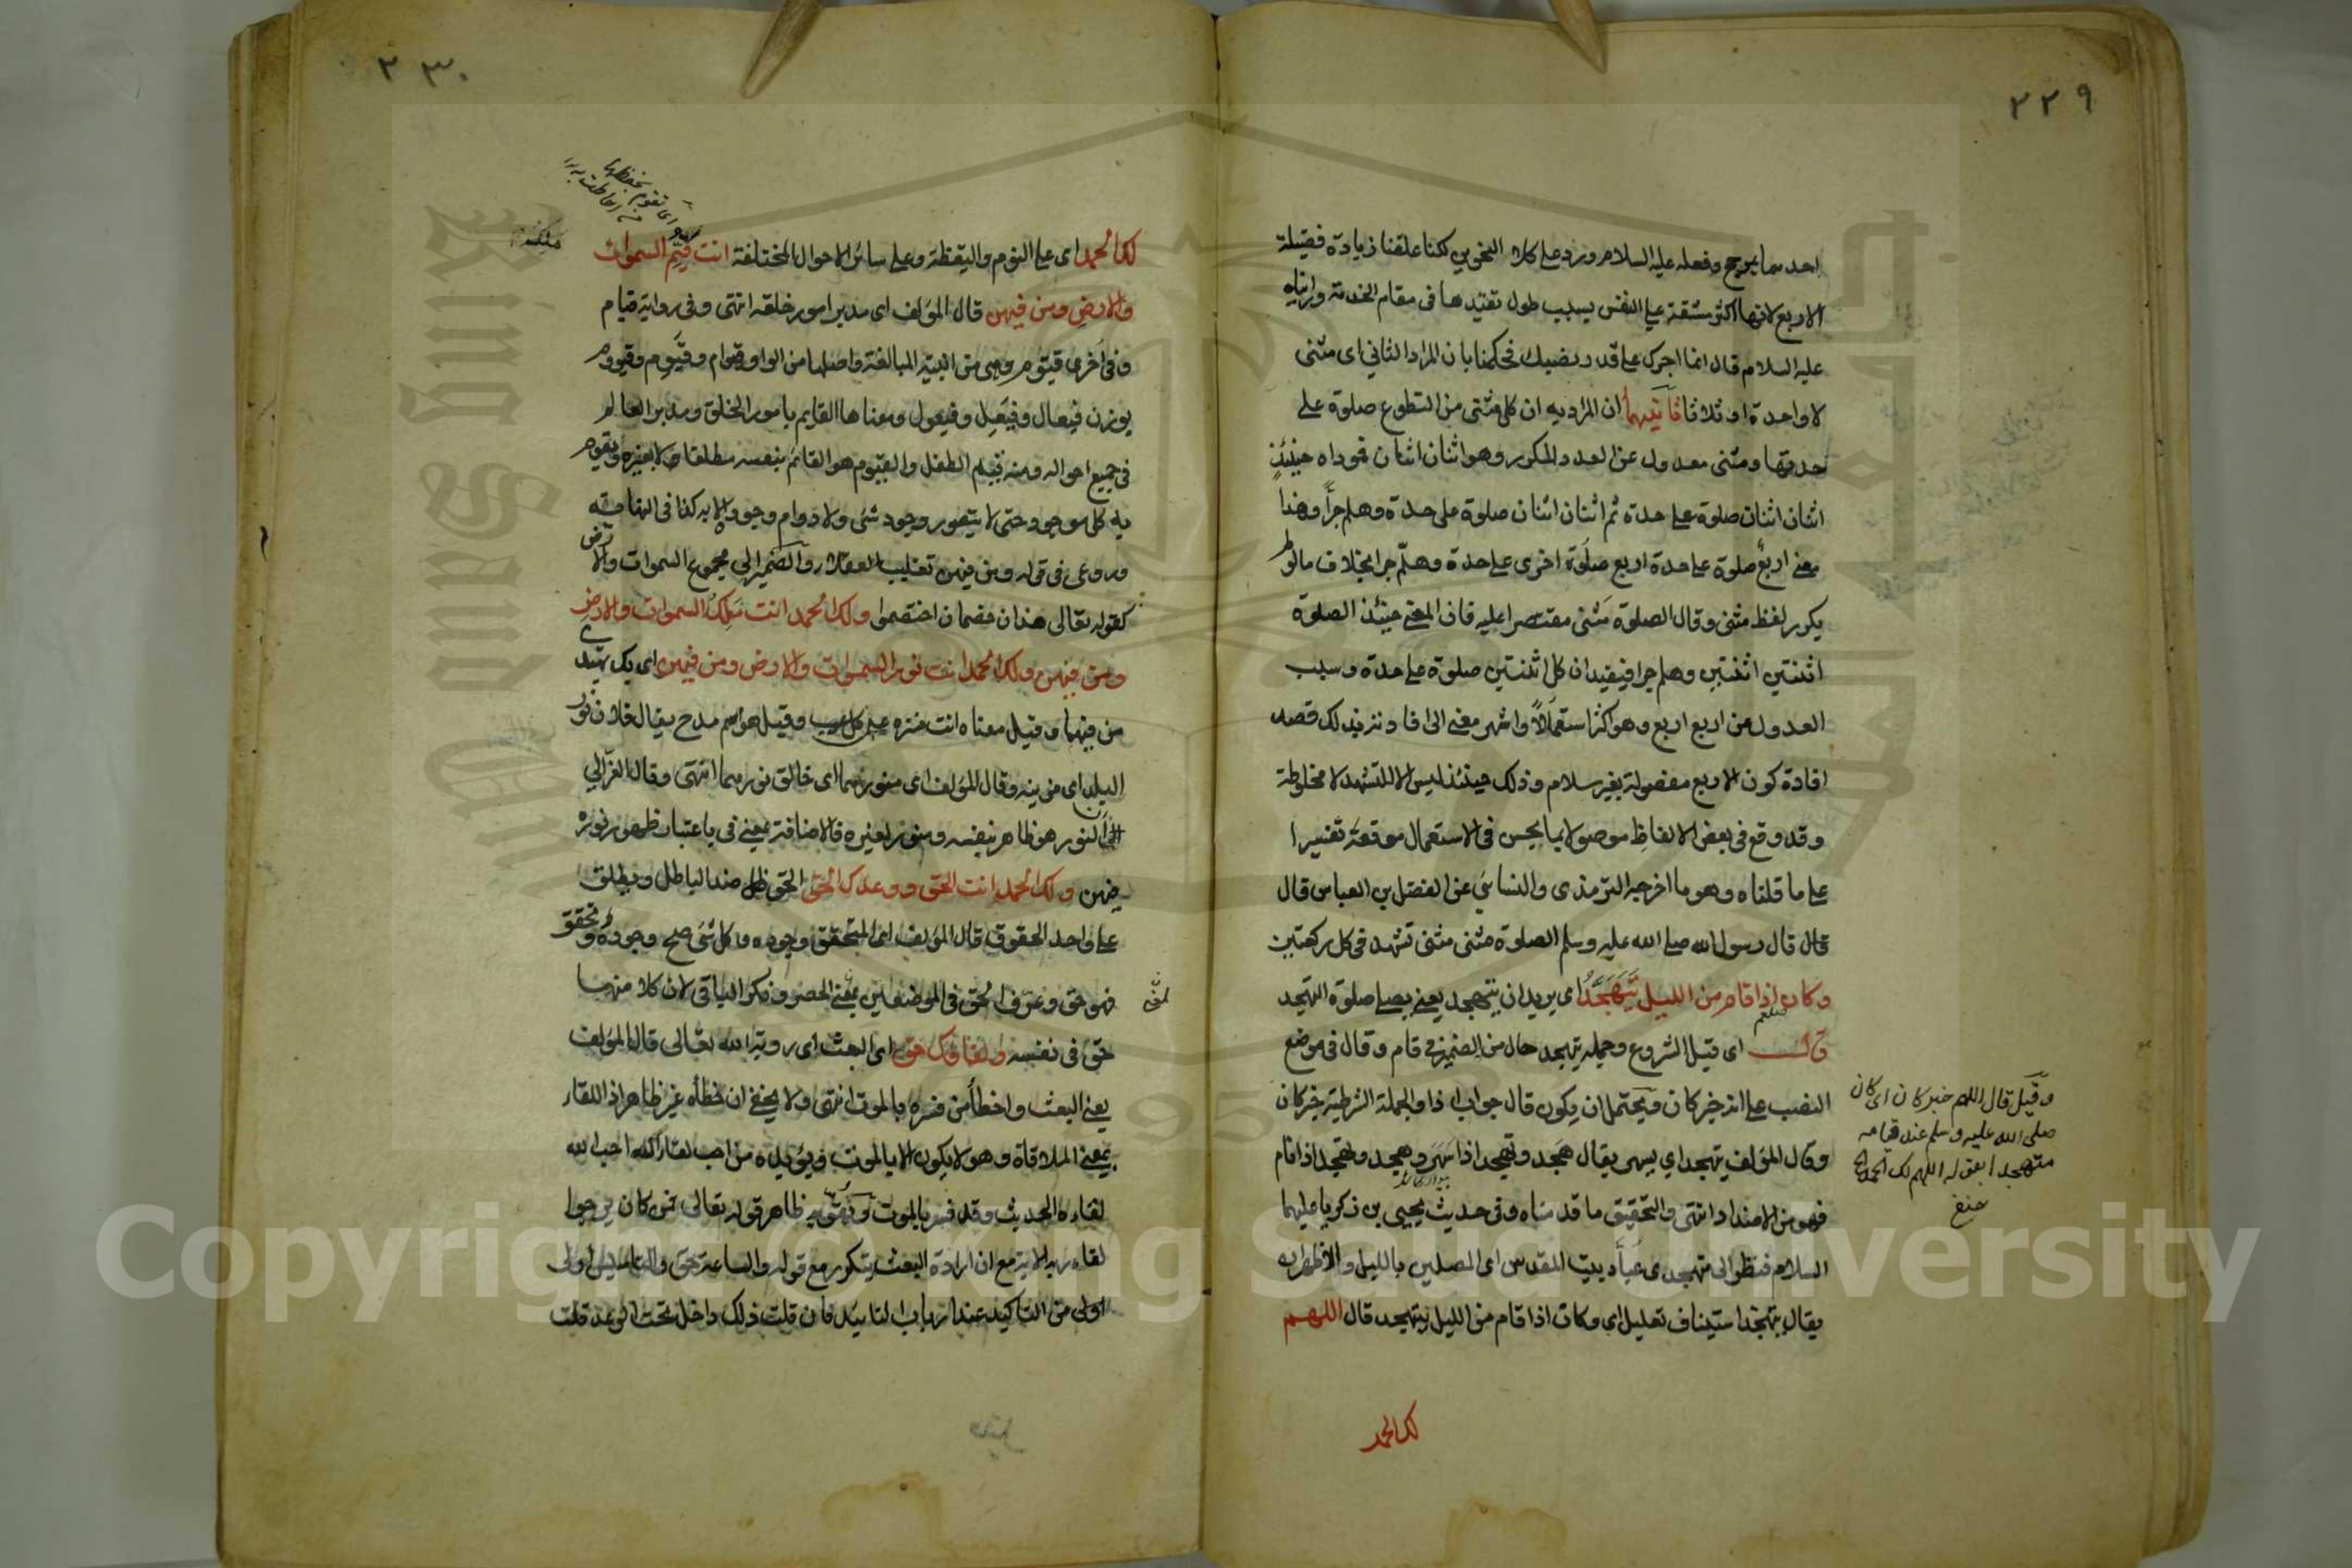 ٢٢٩
احدهما بمرجح وفعله عليه السلام ورد على كلا النحوين لكنا علقنا زيادة فضيلة
الاربع لانها اكثر مشقة على النفس بسبب طول تقييدها في مقام الخدمة ورايناه
عليه السلام قال انما اجرك على قدر نصبك فحكمنا بان المراد الثاني اى مثنى
لا واحدة او ثلاثا ثانيهما ان المراد به ان كل مثنى من التطوع صلوة على
حدتها ومثنى معدول عن العدد المكرر وهو اثنان اثنان فموداه حينئذ
اثنان اثنان صلوة على حدة ثم اثنان اثنان صلوة على حدة وهلم جرا وهذا
معنى اربع صلوة على حدة اربع صلوة اخرى على حدة وهلم جرا بخلاف ما لو لم
يكرر لفظ مثنى وقال الصلوة مثنى مقتصرا عليه فان المعنى حينئذ الصلوة
اثنتين اثنتين وهلم جرا فيفيد ان كل اثنتين صلوة على حدة وسبب
العدول عن اربع اربع وهو اكثر استعمالا واشهر معنى الى افادته بذلك قصد
افادة كون الاربع مفصولة بغير سلام وذلك حينئذ ليس الا للتشهد لا مخلوطة
وقد وقع في بعض الالفاظ موصولا بما يحسن في الاستعمال موقعه تفسيرا
على ما قلناه وهو ما اخرجه الترمذى والنسائي عن الفضل بن العباس قال
قال قال رسول الله صلى الله عليه وسلم الصلوة مثنى مثنى تشهد في كل ركعتين
وكان اذا قام من الليل يتهجد اى يريدان يتهجد يعنى يصلى صلوة التهجد
قال اى قبل الشروع وجملة يتهجد حال من الضمير في قام وقال في موضع
النصب على انه خبر كان ويحتمل ان يكون قال جواب اذا والجملة الشرطية خبر كان
وقال المؤلف يتهجد اي يسهر يقال هجد وتهجد اذا سهر وهجد وتهجد اذا نام
فهو من الاضداد انتهى والتحقيق ما قدمناه وفي حديث يحيى بن زكريا عليهما
السلام فنظر الى متهجدى عباد بيت المقدس اى المصلين بالليل والاظهر انه
يقال يتهجد استيناف تعليل اى وكان اذا قام من الليل يتهجد قال اللهم
لك الحمد
وقيل قال اللهم خبر كان اى كان
صلى الله عليه وسلم عند قيامه
متهجدا بقوله اللهم لك الحمد
حنفى
٢٣٠
لك الحمد اى على النوم واليقظة وعلى سائر الاحوال المختلفة انت قيم السموات
والارض ومن فيهن قال المؤلف اى مدبر امور خلقه انتهى وفى رواية قيام
وفى اخرى قيوم وهى من ابنية المبالغة واصلها من الواو قيوام وقيوم وقيووم
بوزن فيعال وفيعل وفيعول ومعناها القايم بامور الخلق ومدبر العالم
في جميع احواله ومنه قيم الطفل والقيوم هو القائم بنفسه مطلقا لا بغيره ويقوم
به كل موجود حتى لا يتصور وجود شئ ولا دوام وجوده الا به كذا في النهاية
وروعى فى قوله ومن فيهن تغليب العقلاء والضمير الى مجموع السموات والارض
كقوله تعالى هذان خصمان اختصموا ولك الحمد انت ملك السموات والارض
ومن فيهن ولك الحمد انت نور السموات والارض ومن فيهن اى بك يهتدى
من فيهما وقيل معناه انت منزه عن كل عيب وقيل هو اسم مدح يقال فلان نور
البلد اى مزينه وقال المؤلف اى منورهما اى خالق نورهما انتهى وقال الغزالي
ان النور هو ظاهر بنفسه ومنور لغيره فالاضافة بمعنى في باعتبار ظهور نوره
فيهن ولك الحمد انت الحق ووعدك الحق الحق ضد الباطل ويطلق
على واحد الحقوق قال المؤلف اى المتحقق وجوده وكل شئ صح وجوده وتحقق
فهو حق وعرف الحق فى الموضعين بمعنى الحصر ونكر الباقى لان كلا منهما
حق فى نفسه ولقاؤك حق اى البعث اى روية الله تعالى قال المؤلف
يعنى البعث واخطأ من فسره بالموت انتهى ولا يخفى ان خطأه غير ظاهر اذ اللقاء
بمعنى الملاقاة وهو لا يكون الا بالموت ويؤيده من احب لقاء الله احب الله
لقاءه الحديث وقد فسر بالموت ظاهر قوله تعالى من كان يرجوا
لقاء ربه الاية مع ان ارادة البعث يتكرر مع قوله والساعة حق والتاسيس اولى
اولى من التاكيد عند ارباب التاييد فان قلت ذلك داخل تحت الوعد قلت